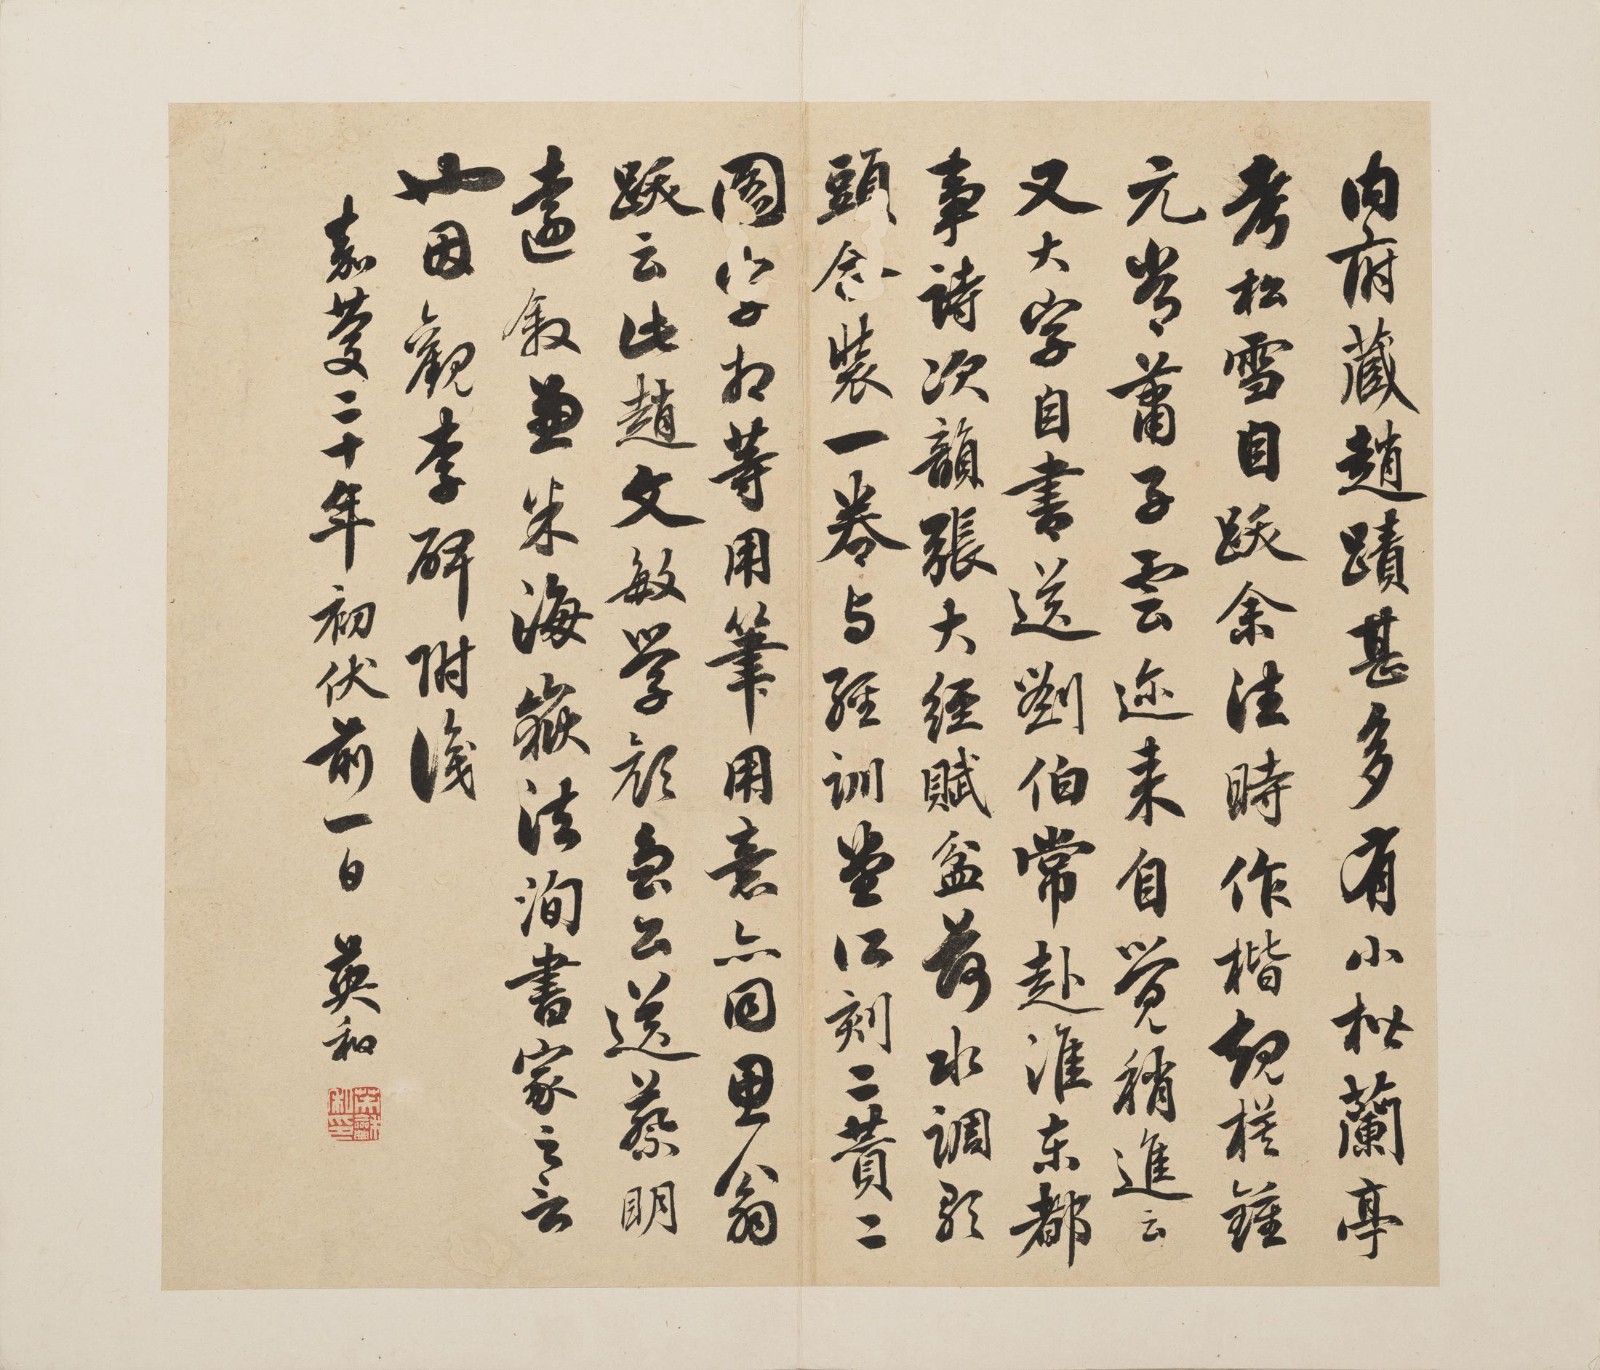 内府藏趙蹟甚多有小楷蘭亭
考松雪自跋余法時作楷規橅鍾
元常蕭子雲迩来自覺稍進云
又大字自書送劉伯常赴淮东都
事詩次韻張大經賦盆荷水調歌
頭合裝一卷与經訓堂江刻二贊二
圖字相等用筆用意亦同思翁
跋云此趙文敏学顔魯公送蔡明
遠敘兼米海嶽法洵書家之言
也因觀李碑附識
嘉慶二十年初伏前一日 英和